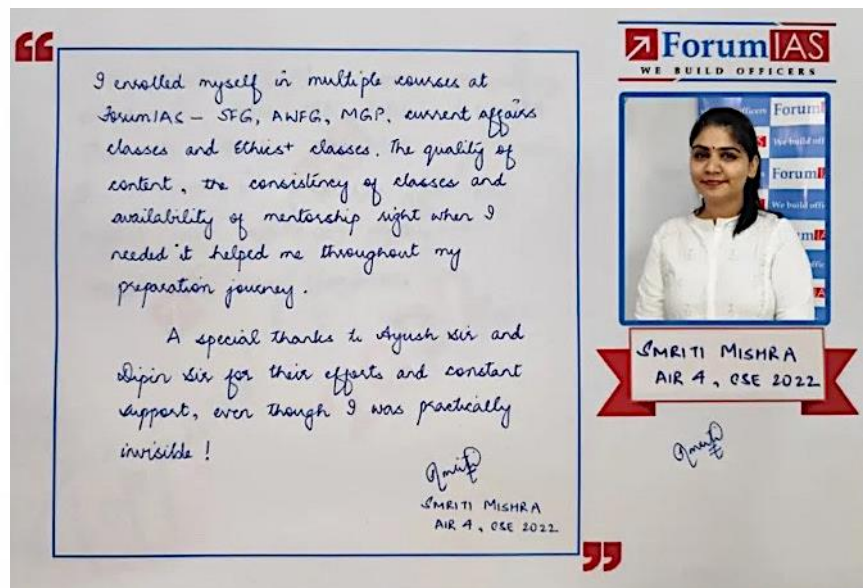 I enrolled myself in multiple courses at
ForumIAS - SFG, AWFG, MGP, current affairs
classes and Ethics+ classes. The quality of
content, the consistency of classes and
availability of mentorship right when I
needed it helped me throughout my
preparation journey.
A special thanks to Ayush sir and
Dipin sir for their efforts and constant
support, even though I was practically
invisible!
SMRITI MISHRA
AIR 4, CSE 2022
ForumIAS
WE BUILD OFFICERS
Officers Forum
We build offi
Forum
We build offi
SMRITI MISHRA
AIR 4, CSE 2022